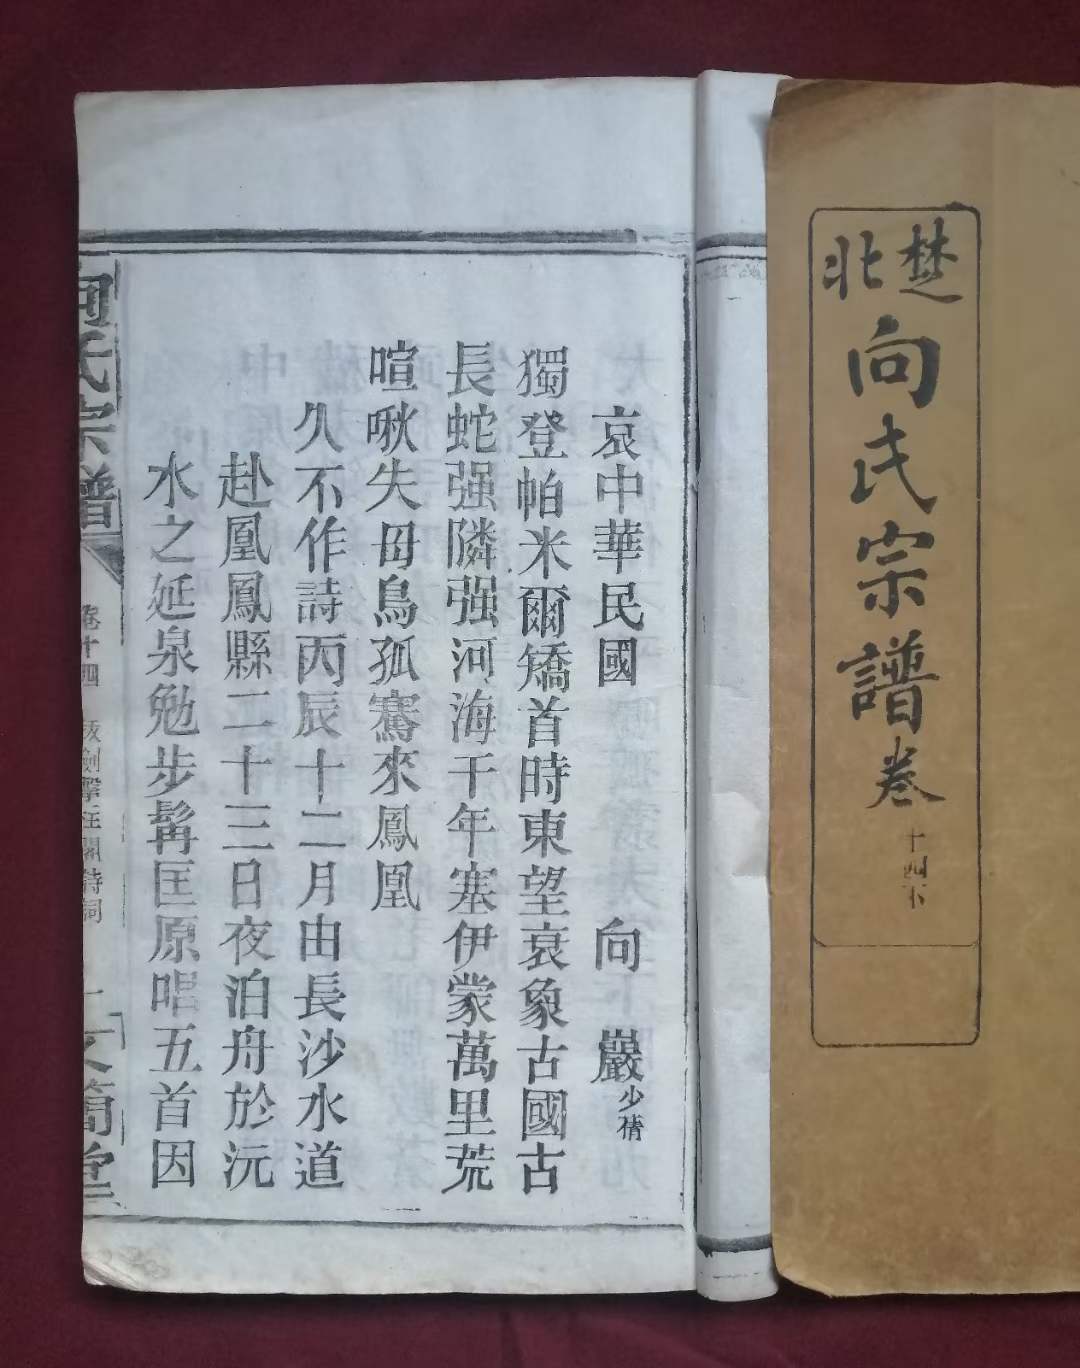 楚北
向氏宗譜卷
十四下
哀中華民國 向 巖少猜
獨登帕米爾矯首時東望哀象古國古
長蛇强隣强河海千年塞伊蒙萬里荒
喧啾失毋鳥孤騫來鳳凰
久不作詩丙辰十二月由長沙水道
赴鳳凰縣二十三日夜泊舟於沅
水之延泉勉步髯匡原唱五首因
向氏宗譜
卷十四
拔劍擊汪閣詩詞
一
文簡堂